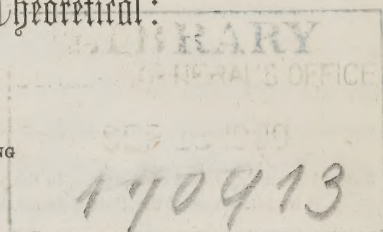 Theoretical:
LIBRARY
GENERAL'S OFFICE
NG
170913